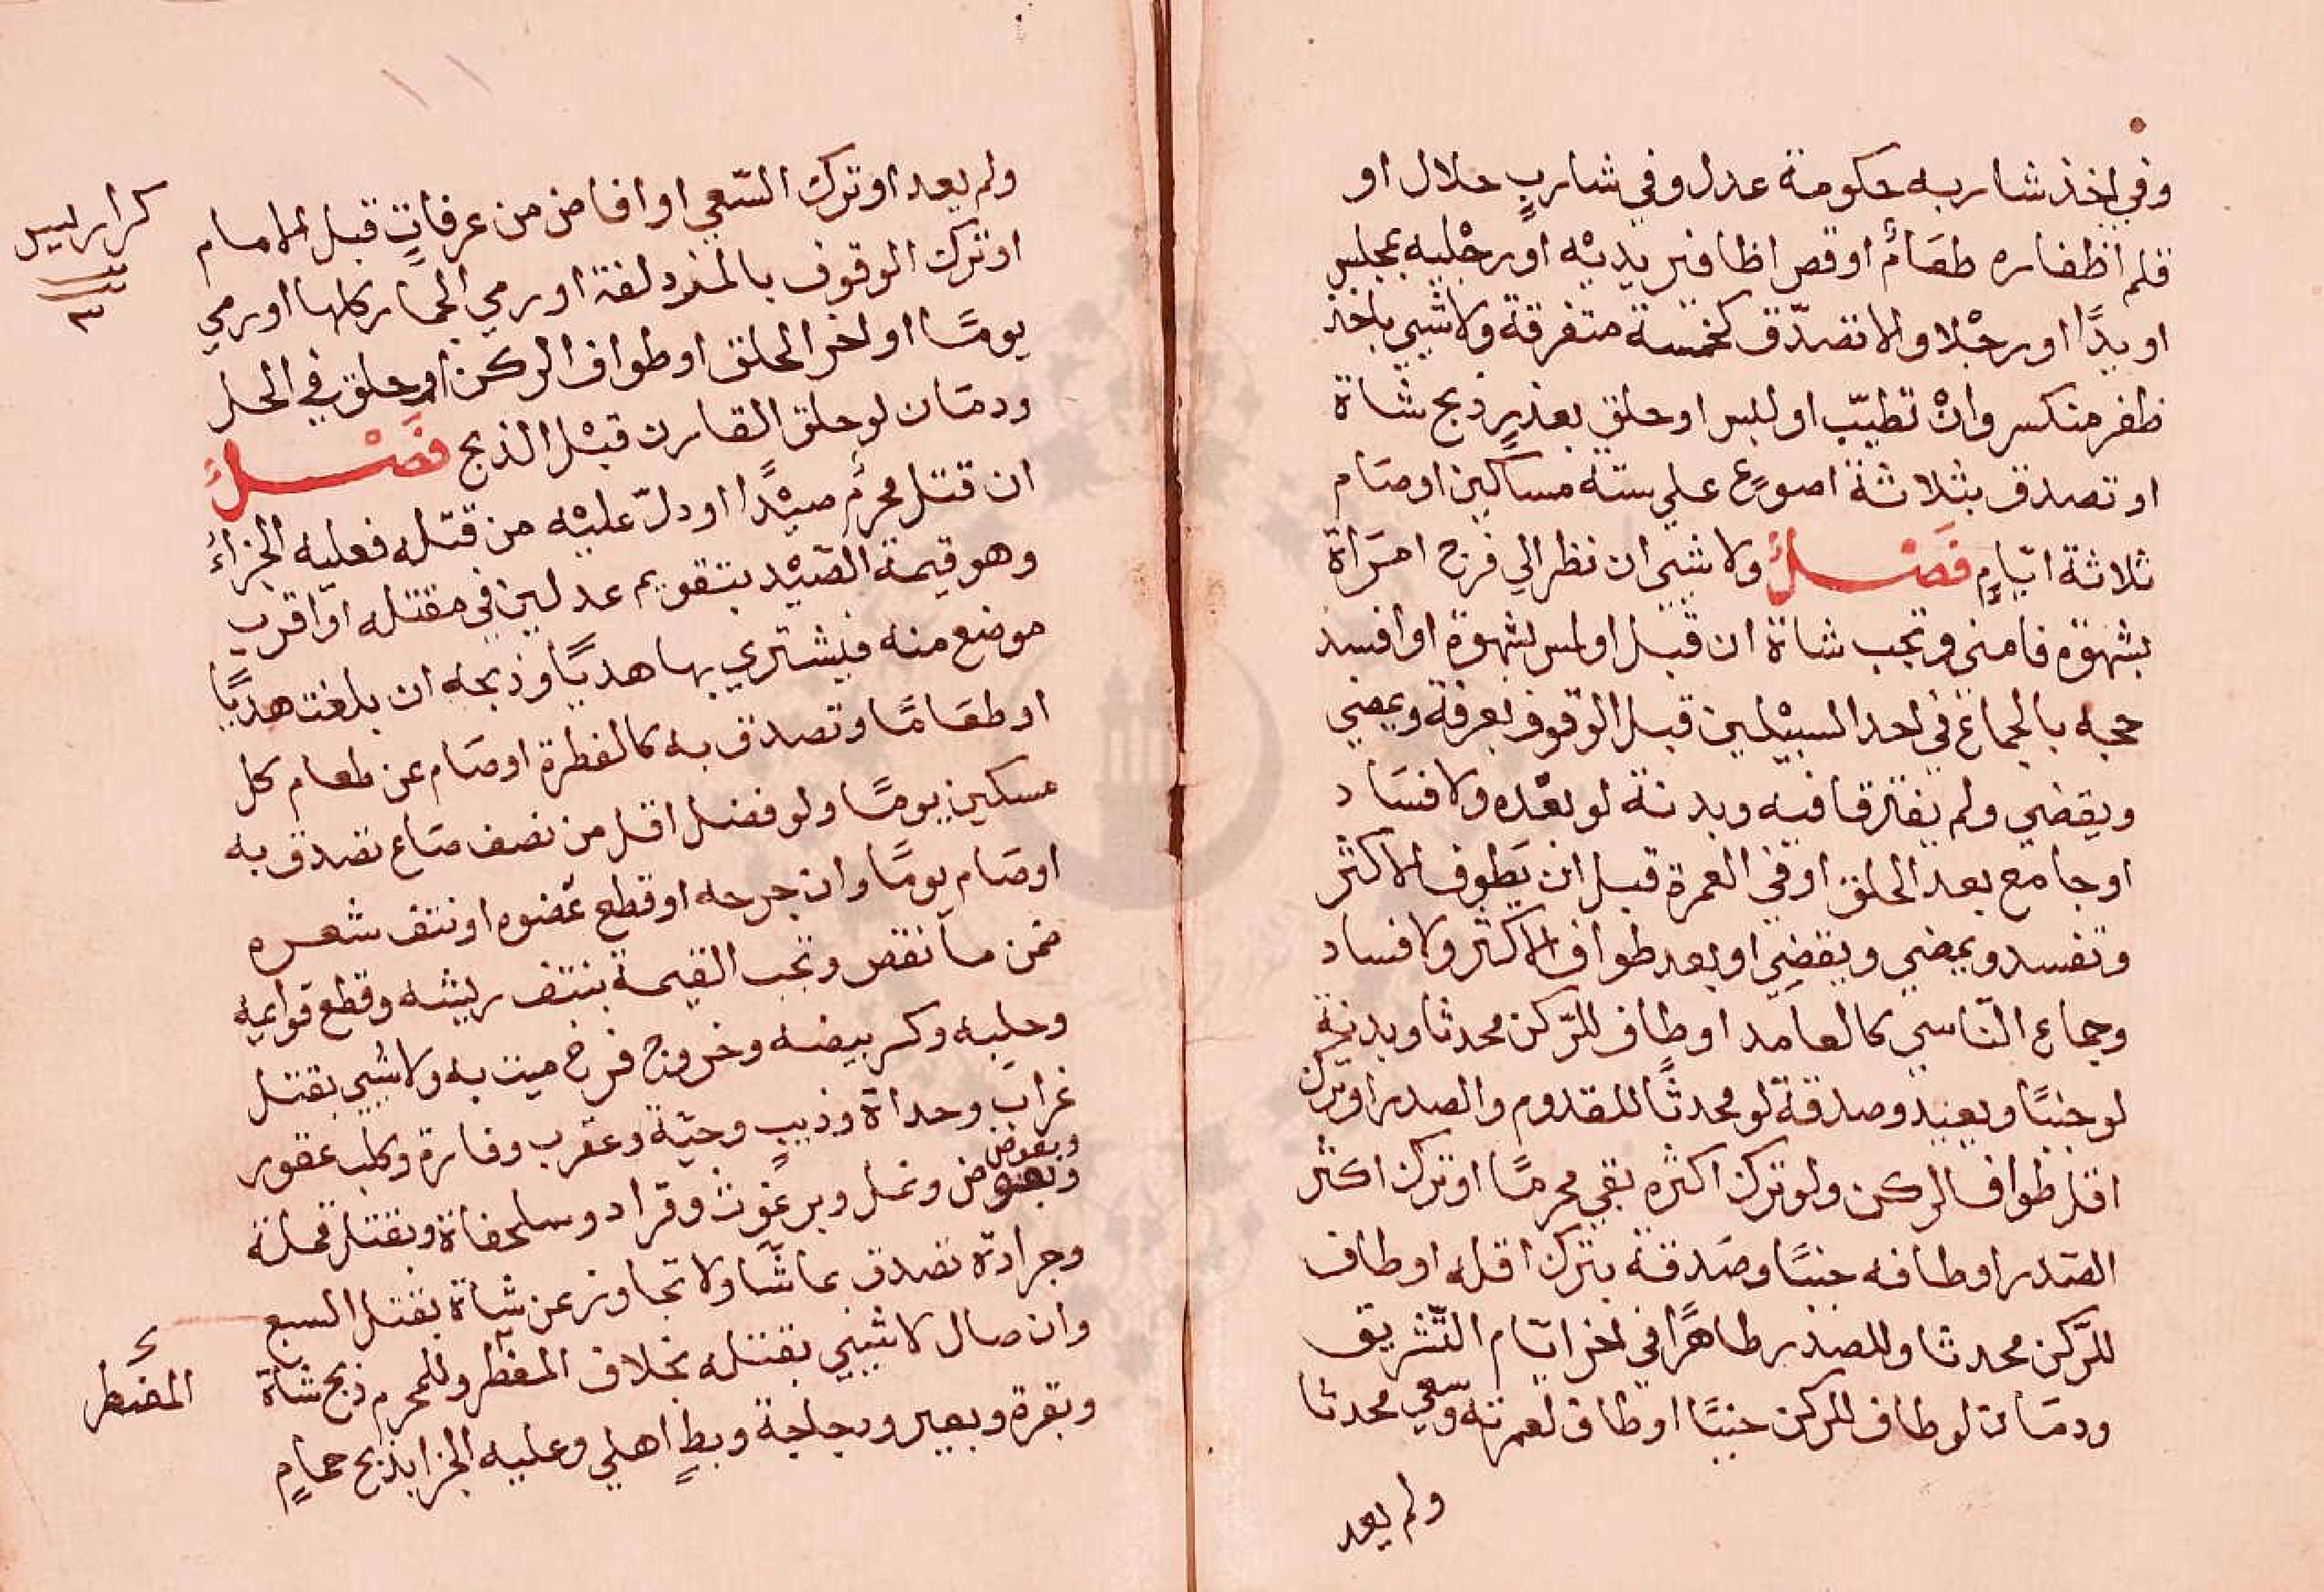 وفي اخذ شاربه حكومة عدل وفي شارب حلال او
قلم اظفاره طعامٌ او قص اظافير يديْه او رجْليه بمجلس
او يدًا او رجْلا والا تصدّق كخمسة متفرقة ولا شيي باخذ
ظفر منكسر وانْ تطيّب او لبس او حلق بعذرٍ ذبح شاة
او تصدق بثلاثة اصوع علي ستة مساكين او صام
ثلاثة ايّامٍ فَصْلٌ ولا شيي ان نظر الي فرج امرَاة
بشهوة فامني وتجب شاة ان قبل او لمس بشهوة او افسد
حجه بالجماع في احد السبيْلين قبل الوقوف بعرفة ويمضي
ويقضي ولم يفترقا فيه وبدنة لو بعْده ولا فسَاد
او جامع بعد الحلق او في العمرة قبل ان يَطوف الاكثر
وتفسد ويمضي ويقضِي او بعد طواف الاكثر ولا فساد
وجماع النّاسي كالعامد او طاف للرّكن محدثا وبدنة
لو جنبًا ويعيد وصدقة لو محدثًا للقدوم والصدر او ترك
اقل طواف الركن ولو ترك اكثره بقي محرمًا او ترك اكثر
الصّدر او طافه جنبًا وصَدقة بترك اقله او طاف
للرّكن محدثا وللصدر طاهرًا في اخر ايّام التّشريق
ودمَان لو طاف للركن جنبًا او طاف لعمرته وسعي محدثا
ولم يعد
ولم يعد او ترك السّعي او افاض من عرفاتٍ قبل الامام
او ترك الوقوف بالمزدلفة او رمي الجمار كلها او رمي
يومًا او اخر الحلق او طواف الركن او حلق في الحل
ودمَان لو حلق القارن قبْل الذبح فَصْلٌ
ان قتل محرمٌ صيْدًا او دلّ عليْه من قتله فعليه الجزاءُ
وهو قيمة الصّيْد بتقويم عدلين في مقتله او اقرب
موضع منه فيشتري بها هديًا وذبحه ان بلغت هديًا
او طعَامًا وتصدق به كالفطرة او صَام عن طعام كل
مسكين يومًا ولو فضل اقل من نصف صَاع تصدق به
او صَام يومًا وان جرحه او قطع عضوه او نتف شعره
ضمن ما نقص وتجب القيمة بنتف ريشه وقطع قوايمه
وحلبه وكسر بيضه وخروج فرخ ميت به ولا شيي بقتل
غراب وحداة وذيبٍ وحيّة وعقرب وفارة وكلب عقور
وبعوض
وبعوض ونمل وبرغوث وقراد وسلحفاة وبقتل قملة
وجرادة تصدق بما شا ولا تجاوز عن شاة بقتل السبع
وان صال لا شيي بقتله بخلاف المضطر وللمحرم ذبح شاة
وبقرة وبعير ودجاجة وبطٍ اهلي وعليه الجزا بذبح حمامٍ
كراريس
٣
المضطر